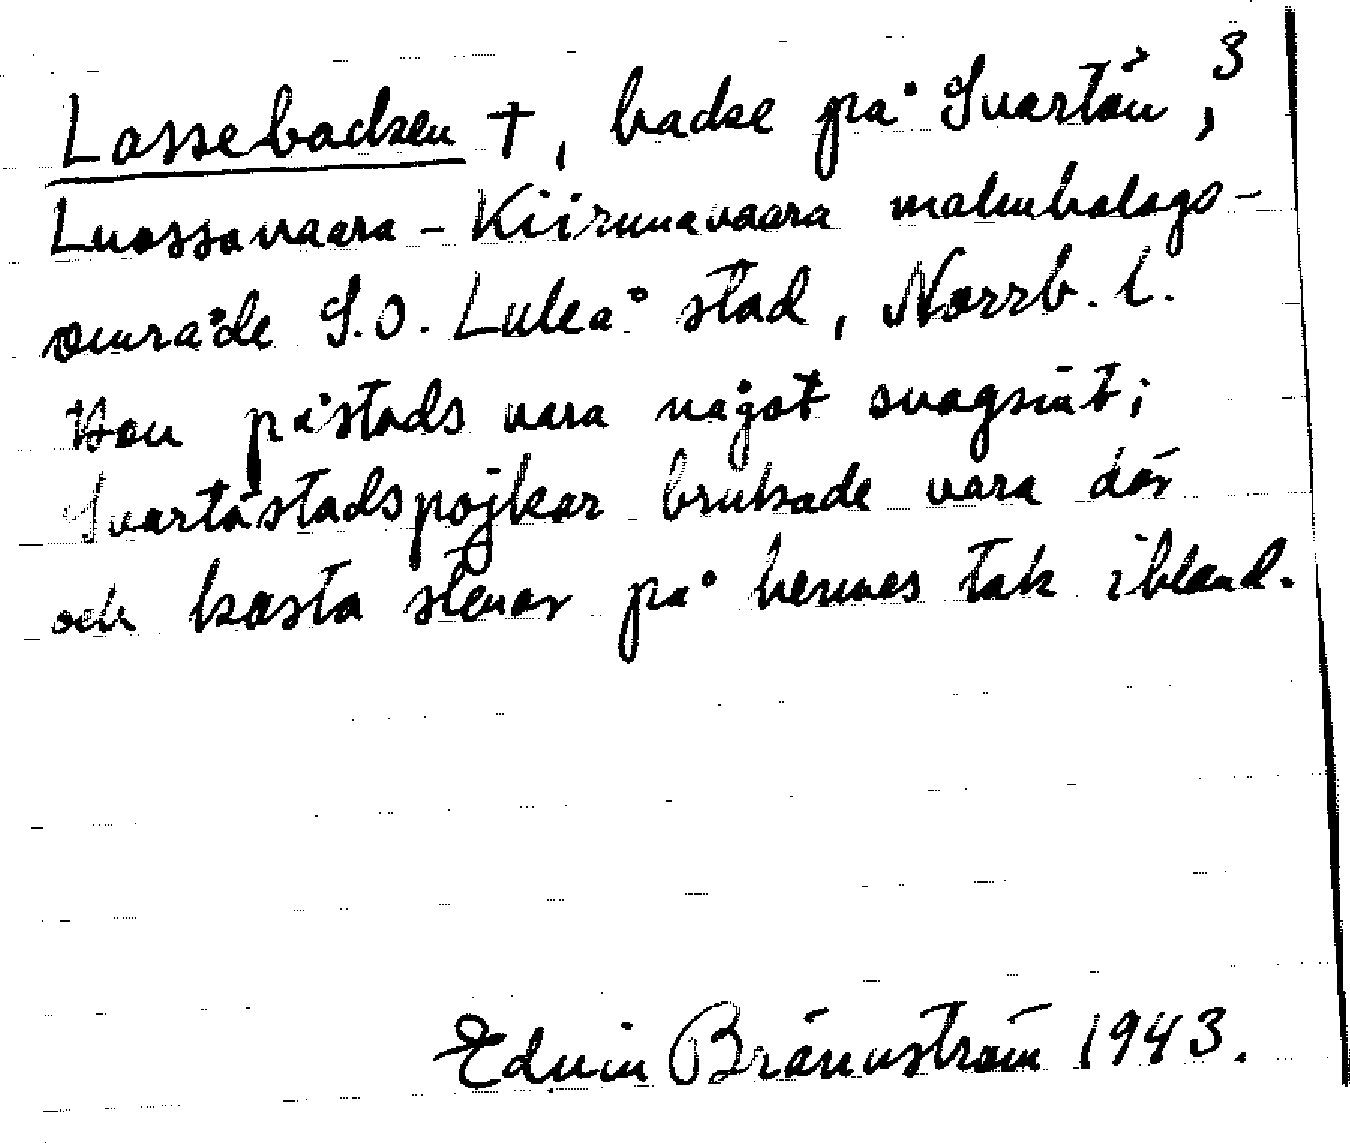 3
Lassebacken †, backe på Svartön,
Luossavaara-Kiirunavaara malmbolags-
område S.O. Luleå stad, Norrb. l.
Hon påstods vara något svagsint;
Svartöstadspojkar brukade vara där
och kasta stenar på hennes tak ibland.
Edvin Brännström 1943.